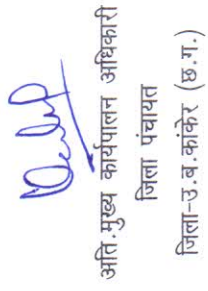 अति.मुख्य कार्यपालन अधिकारी
जिला पंचायत
जिला-उ.ब.कांकेर (छ.ग.)